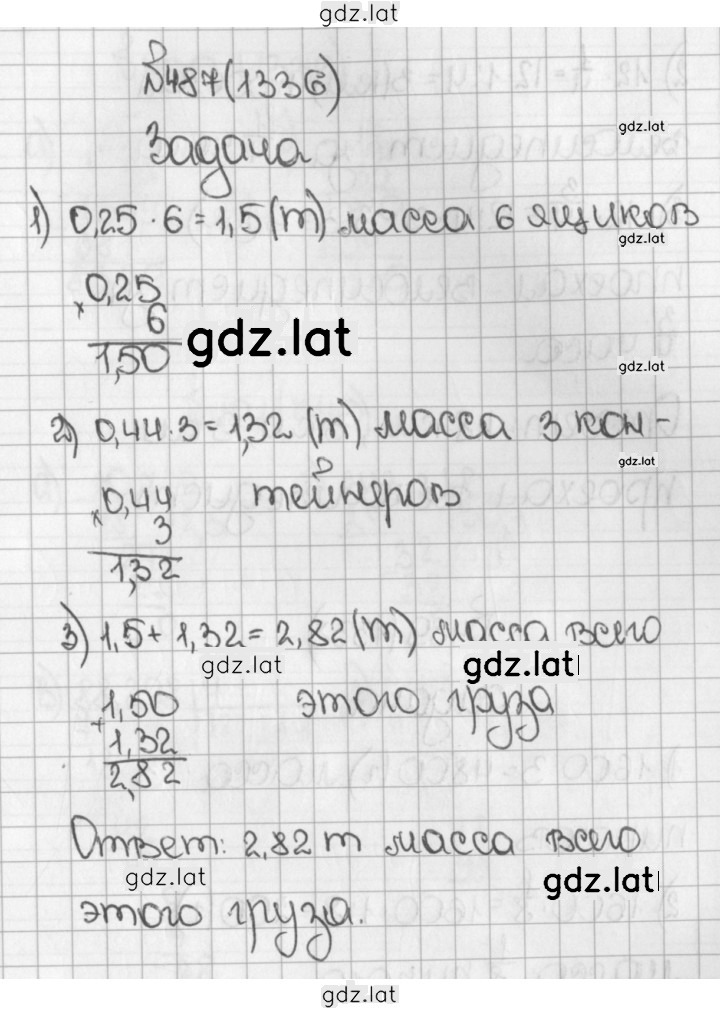 gdz.lat
№487(1336)
gdz.lat
Задача
1) 0,25 · 6 = 1,5 (т) масса 6 ящиков
gdz.lat
× 0,25
6
1,50
gdz.lat
gdz.lat
2) 0,44 · 3 = 1,32 (т) масса 3 кон-
gdz.lat
× 0,44 тейнеров
3
1,32
3) 1,5 + 1,32 = 2,82 (т) масса всего
gdz.lat gdz.lat
+ 1,50 этого груза
1,32
2,82
Ответ: 2,82 т масса всего
gdz.lat gdz.lat
этого груза.
gdz.lat